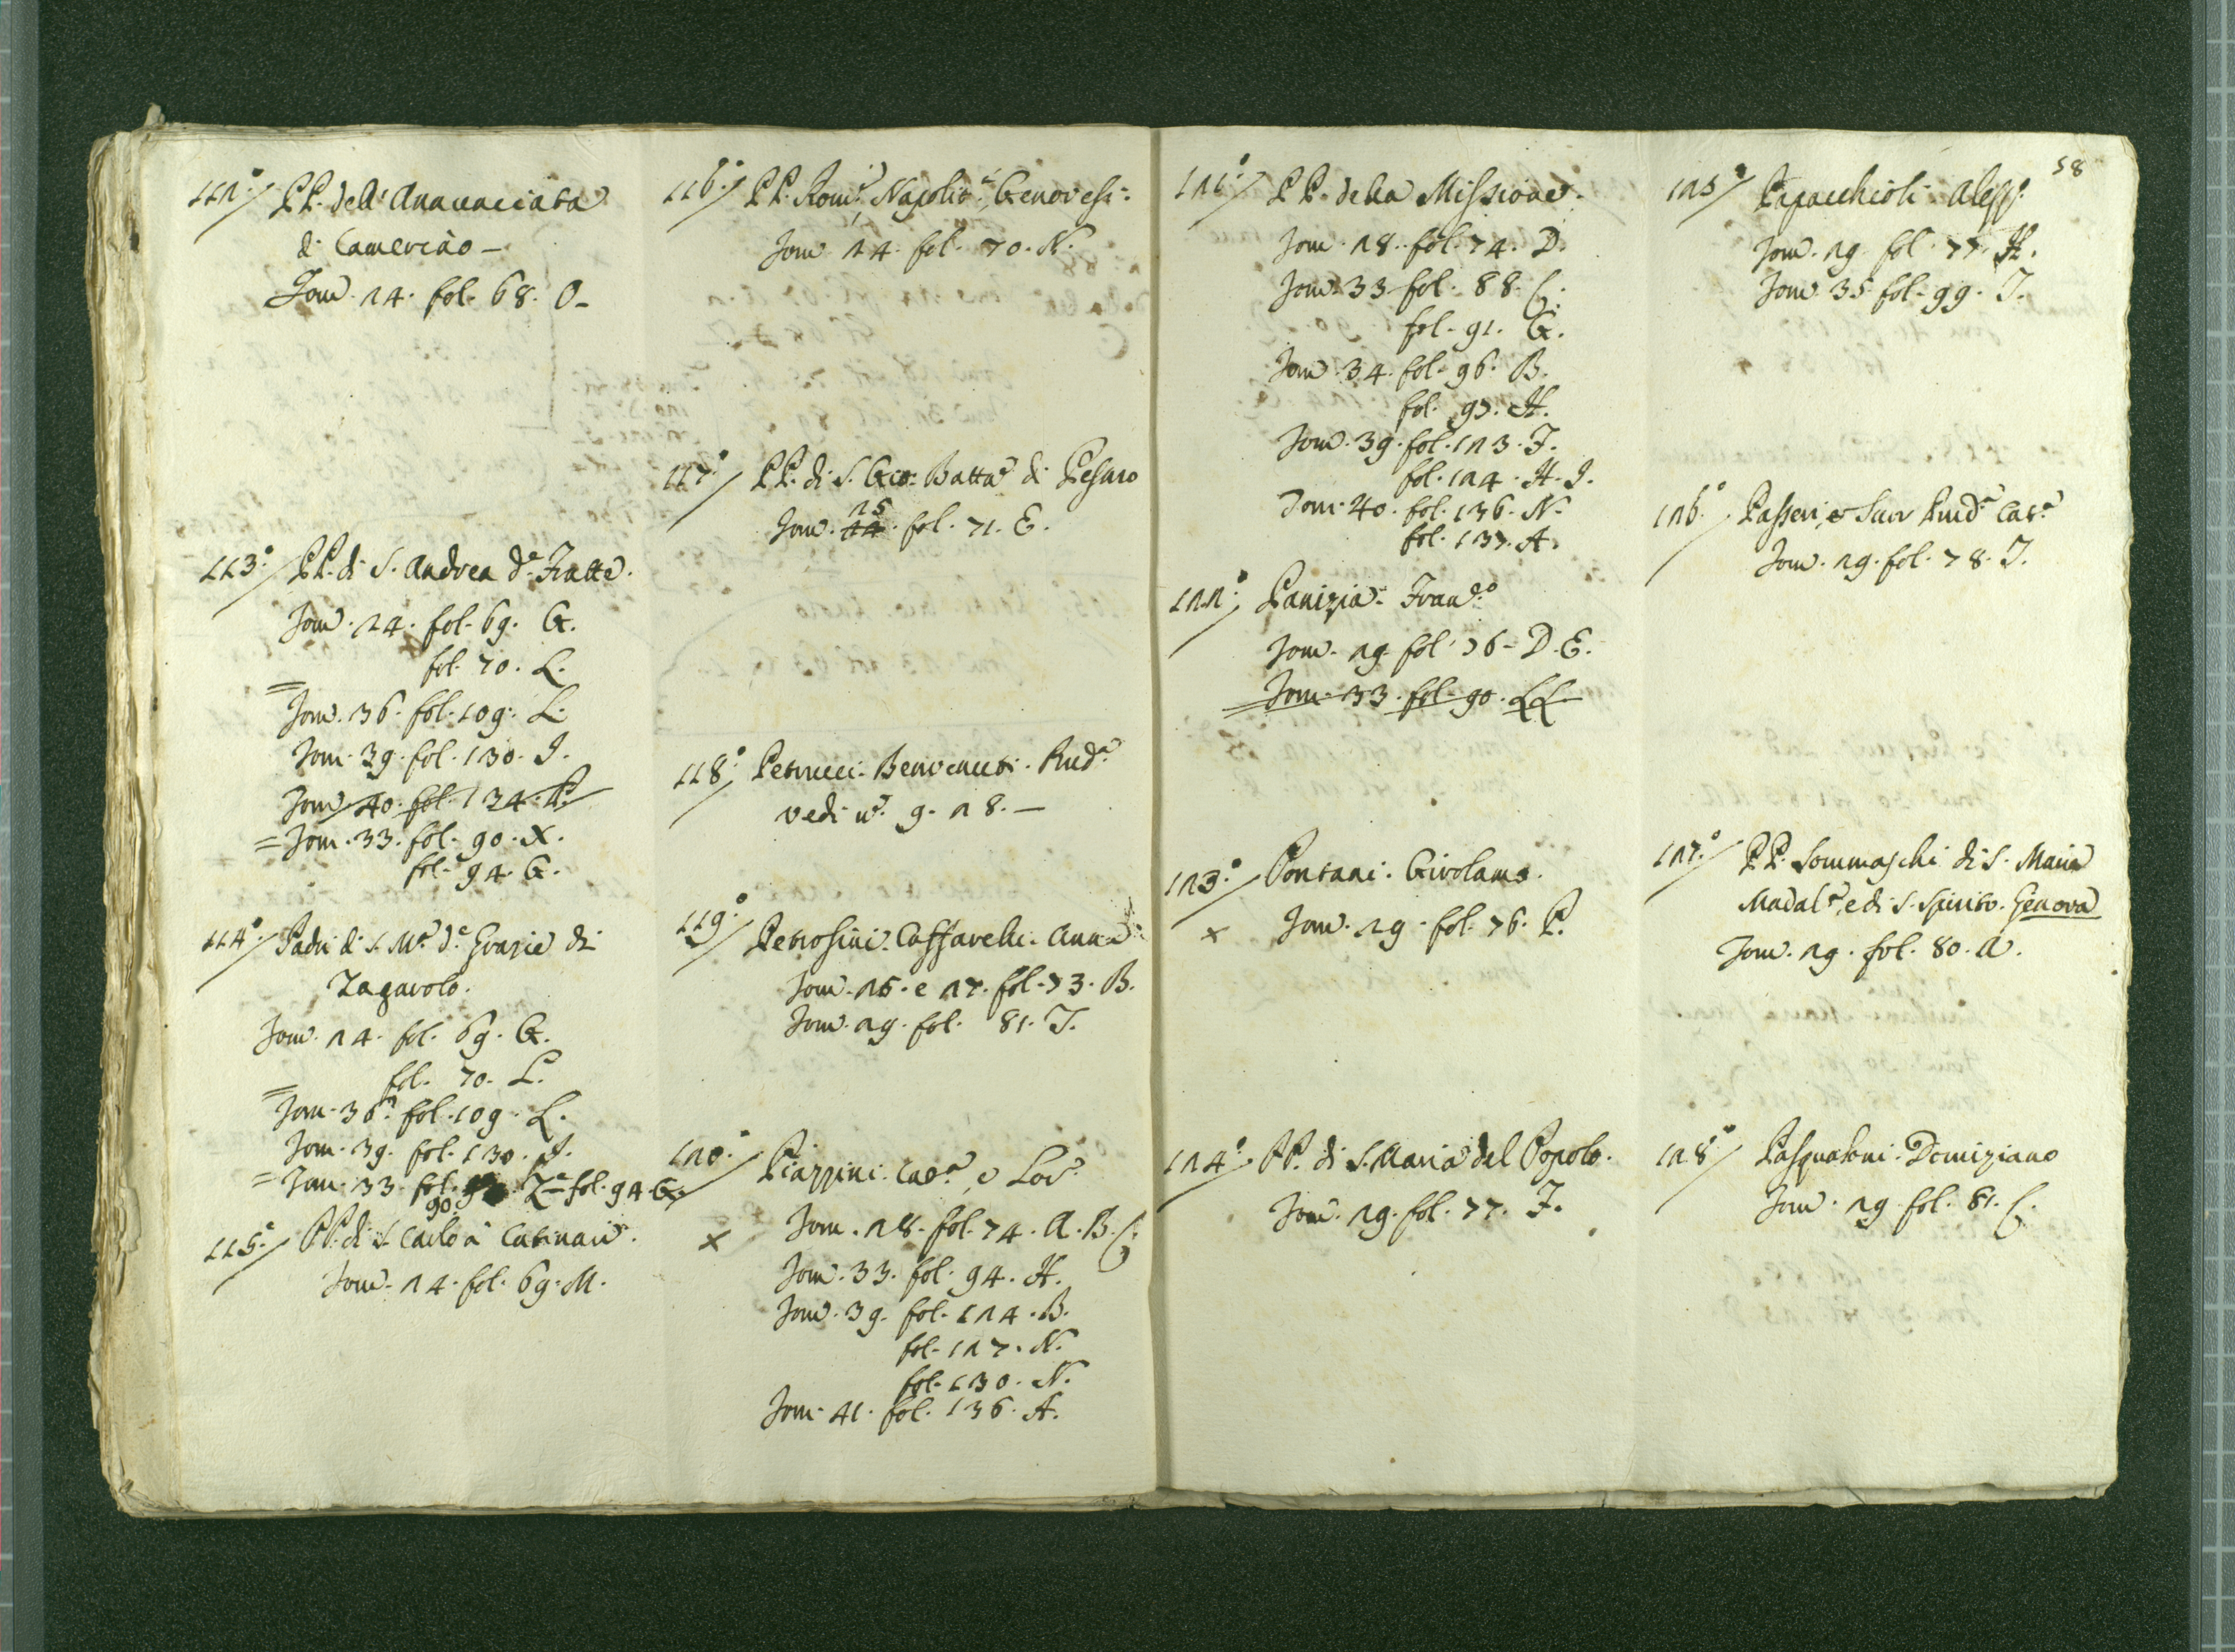 112°/ PP. dell'Annunciata
di Camerino –
Tom. 24. fol. 68. O –
113°/ PP. di S. Andrea d.e Fratte.
Tom. 24. fol. 69. G.
fol. 70. L.
= Tom. 36. fol. 109. L.
Tom. 39. fol. 130. I.
Tom. 40. fol. 134. P.
= Tom. 33. fol. 90. X.
fol. 94. G.
114°/ Padri di S. M.a d.e Grazie di
Zagarolo.
Tom. 24. fol. 69. G.
fol. 70. L.
= Tom. 36. fol. 109. L.
Tom. 39. fol. 130. I.
= Tom. 33. fol. 90. Z = fol. 94. G.
115°/ PP. di S. Carlo à Catinari.
Tom. 24. fol. 69. M.
116°/ PP. Rom.i, Napolit.i, Genovesi.
Tom. 24. fol. 70. N.
117°/ PP. di S. Gio: Batta di Pesaro
25
Tom. 24. fol. 71. E.
118°/ Petrucci. Benvenuti.
vedi n.° 9. 28. –
119°/ Petrosini. Caffarelli. Anna
Tom. 26. e 27. fol. 73. B.
Tom. 29. fol. 81. I.
120°/ Piazzini. e
× Tom. 28. fol. 74. A. B. C.
Tom. 33. fol. 94. H.
Tom. 39. fol. 124. B.
fol. 127. N.
fol. 130. N.
Tom. 41. fol. 136. A.
58
121°/ PP. della Missione.
Tom. 28. fol. 74. D.
Tom. 33. fol. 88. C.
fol. 91. G.
Tom. 34. fol. 96. B.
fol. 97. H.
Tom. 39. fol. 123. I.
fol. 124. H. I.
Tom. 40. fol. 136. N.
fol. 137. A.
122°/ Panizia. Fran.co
Tom. 29. fol. 76. D. E.
Tom. 33. fol. 90. LL.
123°/ Pontani. Girolamo.
× Tom. 29. fol. 76. P.
124°/ PP. di S. Maria del Popolo.
Tom. 29. fol. 77. F.
125°/ Papacchioli. Aless.
Tom. 29. fol. 77. H.
Tom. 35. fol. 99. I.
126°/ Passeri, e
Tom. 29. fol. 78. I.
127°/ PP. Sommaschi di S. Maria
Madal.a, e di S. Spirito. Genova
Tom. 29. fol. 80. A.
128°/ Pasqualoni. Domiziano
Tom. 29. fol. 81. C.